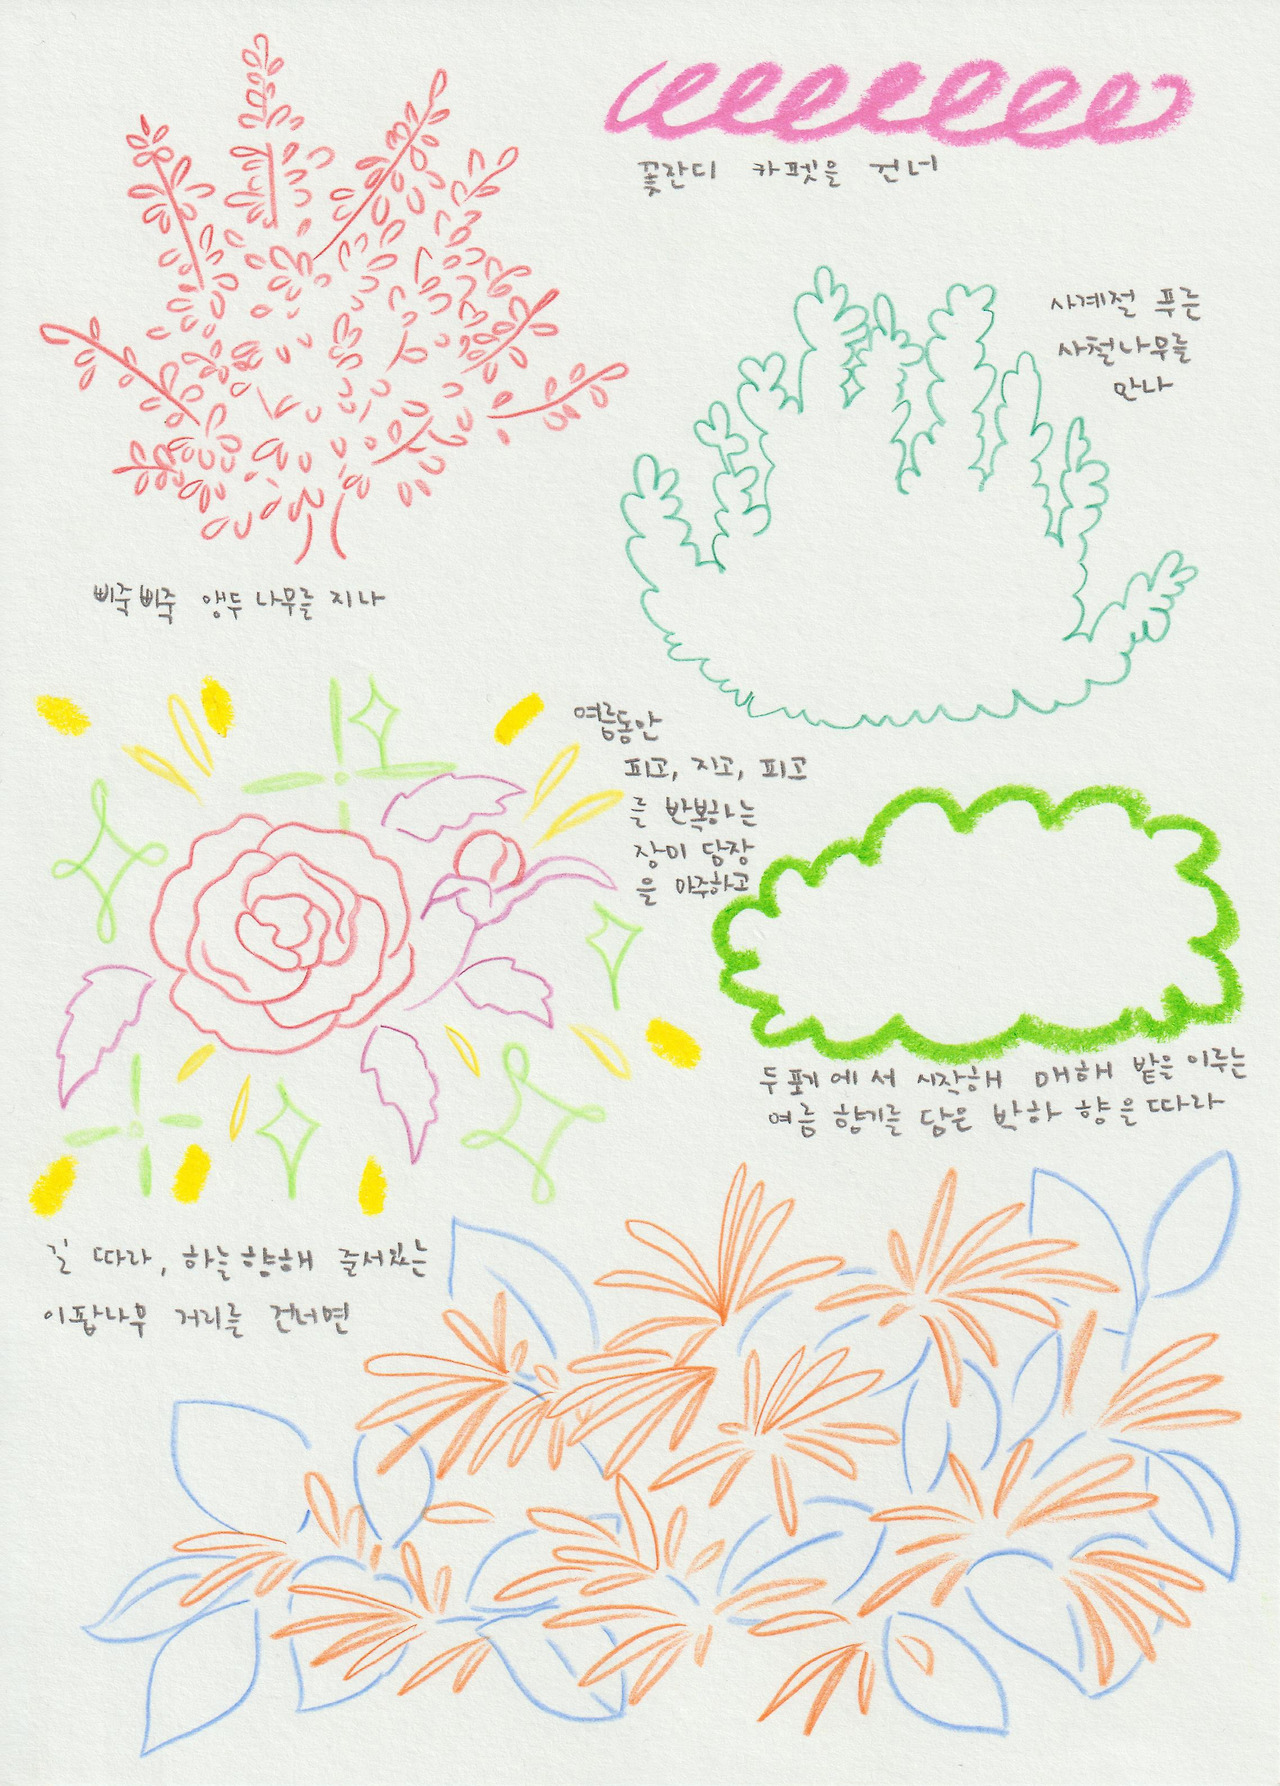 꽃잔디 카펫을 건너
사계절 푸른
사철나무를
만나
삐죽삐죽 앵두나무를 지나
여름동안
피고, 지고, 피고
를 반복하는
장미 담장
을 마주하고
두 포기에서 시작해 매해 밭을 이루는
여름 향기를 담은 박하 향을 따라
길 따라, 하늘향해 줄서있는
이팝나무 거리를 건너면